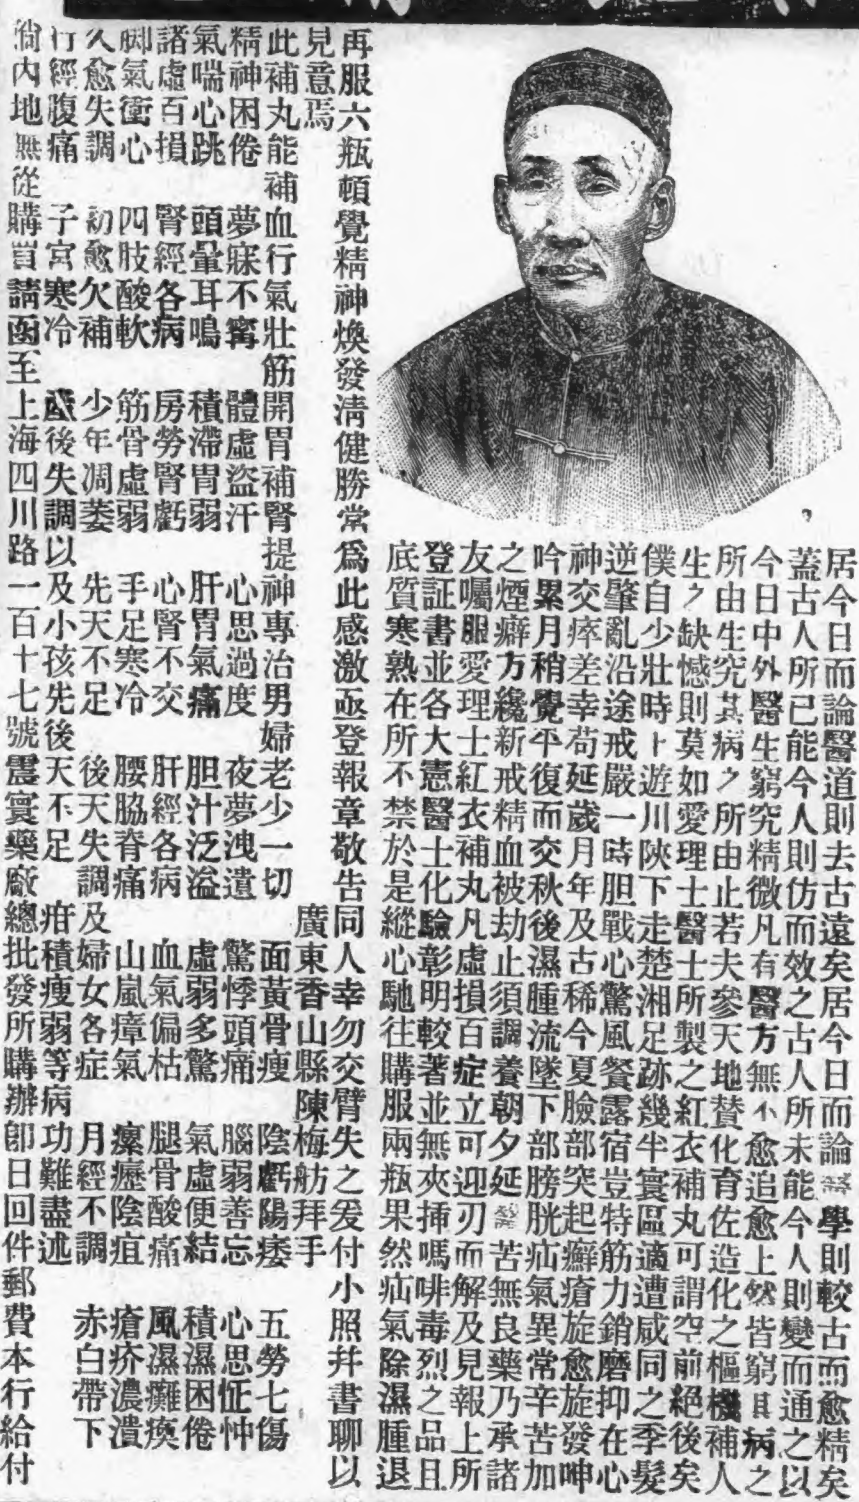 居今日而論醫道則去古遠矣居今日而論醫學則較古而愈精矣
蓋古人所已能今人則仿而效之古人所未能今人則變而通之以
今日中外醫生窮究精微凡有醫方無不愈追愈上然皆窮其病之
所由生究其病之所由止若夫參天地贊化育佐造化之樞機補人
生之缺憾則莫如愛理士醫士所製之紅衣補丸可謂空前絕後矣
僕自少壯時上遊川陝下走楚湘足跡幾半寰區適遭咸同之季髮
逆肇亂沿途戒嚴一時胆戰心驚風餐露宿豈特筋力銷磨抑在心
神交瘁差幸苟延歲月年及古稀今夏臉部突起癬瘡旋愈旋發呻
吟累月稍覺平復而交秋後濕腫流墜下部膀胱疝氣異常辛苦加
之煙癖方纔新戒精血被劫止須調養朝夕延醫苦無良藥乃承諸
友囑服愛理士紅衣補丸凡虛損百症立可迎刃而解及見報上所
登証書並各大憲醫士化驗彰明較著並無夾揷嗎啡毒烈之品且
底質寒熱在所不禁於是縱心馳往購服兩瓶果然疝氣除濕腫退
再服六瓶頓覺精神煥發淸健勝常爲此感激亟登報章敬告同人幸勿交臂失之爰付小照幷書聊以
見意焉 廣東香山縣陳梅舫拜手
此補丸能補血行氣壯筋開胃補腎提神專治男婦老少一切 面黃骨瘦 陰虧陽痿 五勞七傷
精神困倦 夢寐不寗 體虛盜汗 心思過度 夜夢洩遺 驚悸頭痛 腦弱善忘 心思怔忡
氣喘心跳 頭暈耳鳴 積滯胃弱 肝胃氣痛 胆汁泛溢 虛弱多驚 氣虛便結 積濕困倦
諸虛百損 腎經各病 房勞腎虧 心腎不交 肝經各病 血氣偏枯 腿骨酸痛 風濕癱瘓
脚氣衝心 四肢酸軟 筋骨虛弱 手足寒冷 腰脇脊痛 山嵐瘴氣 瘰癧陰疽 瘡疥濃潰
久愈失調 初愈欠補 少年凋萎 先天不足 後天失調及婦女各症 月經不調 赤白帶下
行經腹痛 子宮寒冷 產後失調以及小孩先後天不足 疳積瘦弱等病功難盡述
倘內地無從購買請函至上海四川路一百十七號震寰藥廠總批發所購辦卽日回件郵費本行給付